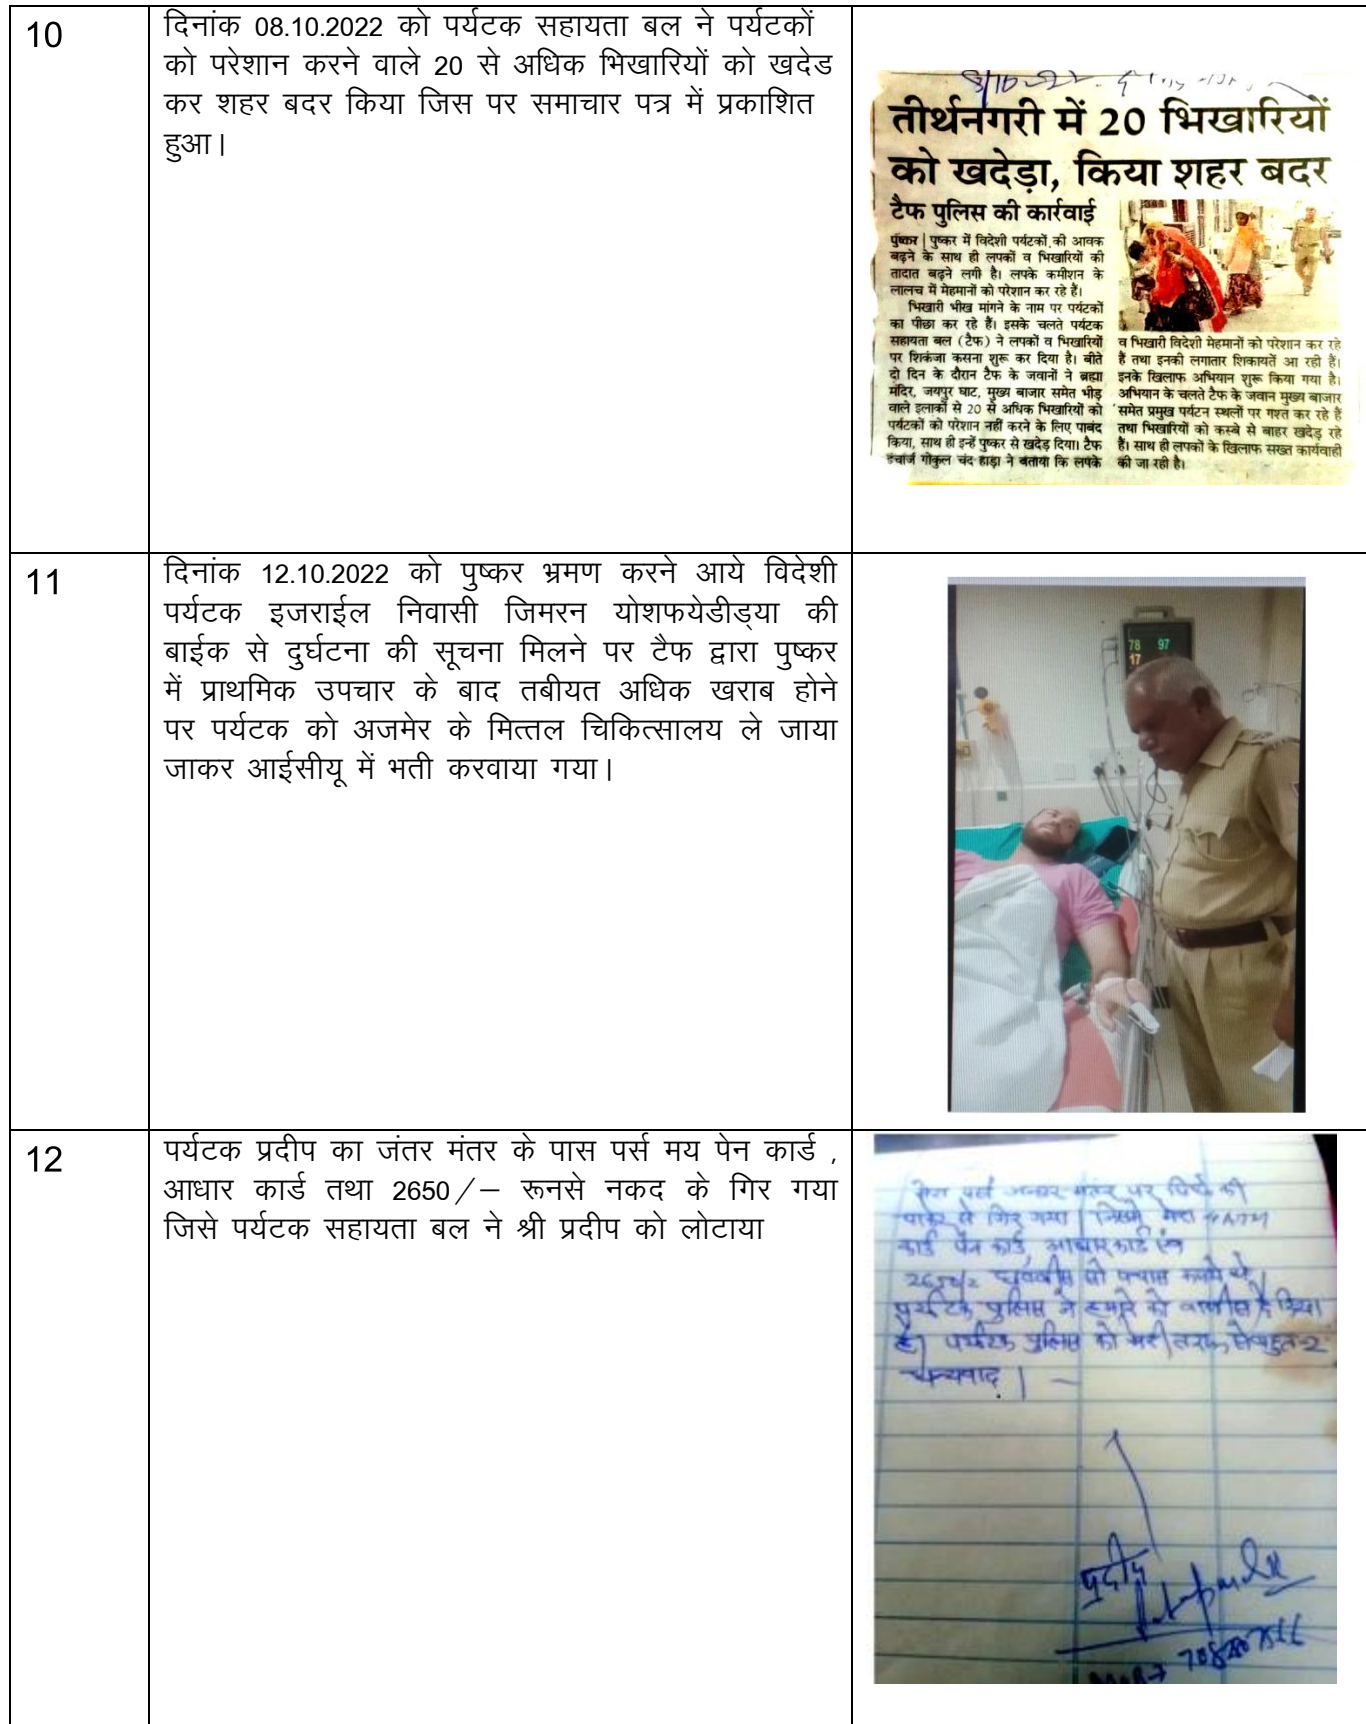 10
दिनांक 08.10.2022 को पर्यटक सहायता बल ने पर्यटकों
को परेशान करने वाले 20 से अधिक भिखारियों को खदेड
कर शहर बदर किया जिस पर समाचार पत्र में प्रकाशित
हुआ।
तीर्थनगरी में 20 भिखारियों
को खदेड़ा, किया शहर बदर
टैफ पुलिस की कार्रवाई
पुष्कर | पुष्कर में विदेशी पर्यटकों की आवक
बढ़ने के साथ ही लपकों व भिखारियों की
तादात बढ़ने लगी है। लपके कमीशन के
लालच में मेहमानों को परेशान कर रहे हैं।
भिखारी भीख मांगने के नाम पर पर्यटकों
का पीछा कर रहे हैं। इसके चलते पर्यटक
सहायता बल (टैफ) ने लपकों व भिखारियों
पर शिकंजा कसना शुरू कर दिया है। बीते
दो दिन के दौरान टैफ के जवानों ने ब्रह्मा
मंदिर, जयपुर घाट, मुख्य बाजार समेत भीड़
वाले इलाकों से 20 से अधिक भिखारियों को
पर्यटकों को परेशान नहीं करने के लिए पाबंद
किया, साथ ही इन्हें पुष्कर से खदेड़ दिया। टैफ
इंचार्ज गोकुल चंद हाड़ा ने बताया कि लपके
व भिखारी विदेशी मेहमानों को परेशान कर रहे
हैं तथा इनकी लगातार शिकायतें आ रही हैं।
इनके खिलाफ अभियान शुरू किया गया है।
अभियान के चलते टैफ के जवान मुख्य बाजार
समेत प्रमुख पर्यटन स्थलों पर गश्त कर रहे हैं
तथा भिखारियों को कस्बे से बाहर खदेड़ रहे
हैं। साथ ही लपकों के खिलाफ सख्त कार्यवाही
की जा रही है।
11
दिनांक 12.10.2022 को पुष्कर भ्रमण करने आये विदेशी
पर्यटक इजराईल निवासी जिमरन योशफयेडीड्या की
बाईक से दुर्घटना की सूचना मिलने पर टैफ द्वारा पुष्कर
में प्राथमिक उपचार के बाद तबीयत अधिक खराब होने
पर पर्यटक को अजमेर के मित्तल चिकित्सालय ले जाया
जाकर आईसीयू में भती करवाया गया।
78 97
17
12
पर्यटक प्रदीप का जंतर मंतर के पास पर्स मय पेन कार्ड ,
आधार कार्ड तथा 2650/– रूनसे नकद के गिर गया
जिसे पर्यटक सहायता बल ने श्री प्रदीप को लोटाया
मेरा पर्स जन्तर मन्तर पर
से गिर गया | जिसमे मेरा ATM
कार्ड पेन कार्ड, आधार कार्ड एंव
सो पचास रूपये थे
पर्यटक पुलिस ने हमारे को वापीस दे दिया
है| पर्यटक पुलिस को मेरी तरफ से बहुत-2
धन्यवाद |
प्रदीप